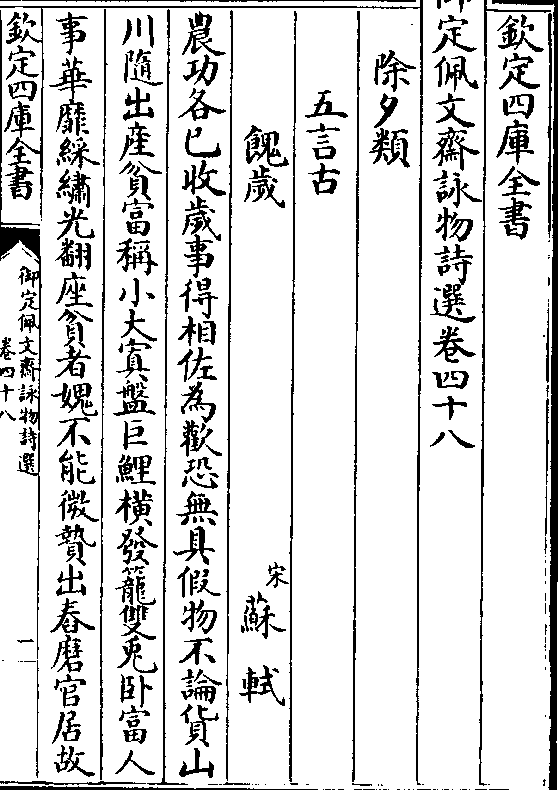 欽定四庫全書
御定佩文齋詠物詩選卷四十八
除夕類
五言古
餽歲
宋蘇軾
農功各已收歲事得相佐為歡恐無具假物不論貨山
川隨出產貧富稱小大寘盤巨鯉橫發籠雙兎卧富人
事華靡綵繡光翻座貧者媿不能微贄出舂磨官居故
欽定四庫全書
御定佩文齋詠物詩選
卷四十八
一